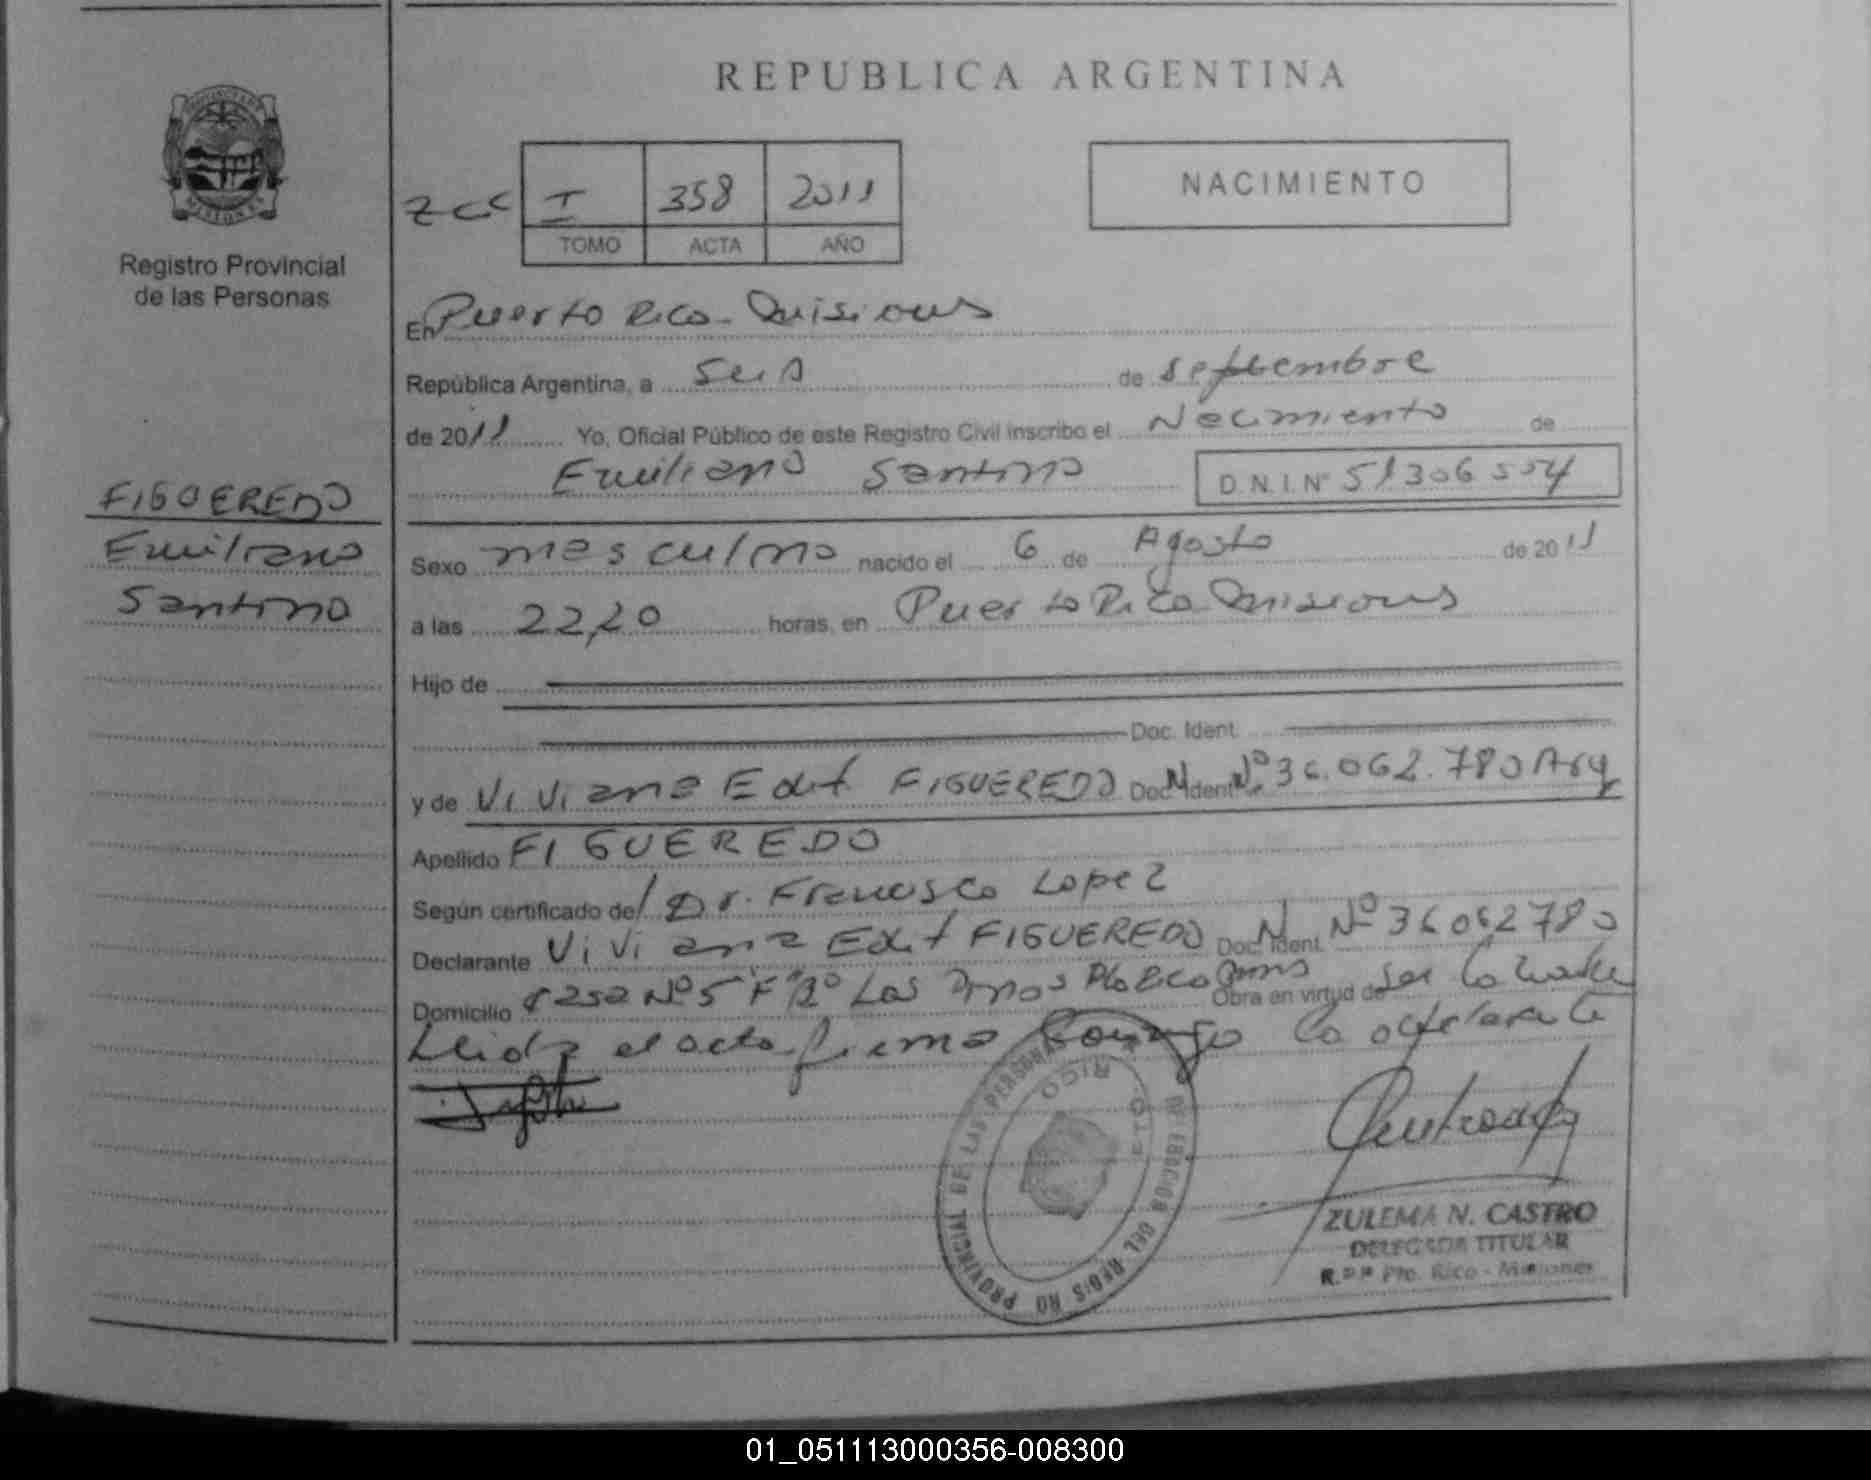 REPUBLICA ARGENTINA
PROVINCIA DE
MISIONES
Registro Provincial
de las Personas
I 358 2011
TOMO ACTA AÑO
NACIMIENTO
En Puerto Rico - Misiones
República Argentina, a seis de septiembre
de 2011 Yo, Oficial Público de este Registro Civil inscribo el Nacimiento de
Emiliano Santino D.N.I.Nº 51306554
FIGUEREDO
Emiliano
Santino
Sexo masculino nacido el 6 de Agosto de 2011
a las 22,20 horas, en Puerto Rico - Misiones
Hijo de
Doc. Ident.
y de Viviana Edit FIGUEREDO Doc. Ident. Nº 36.062.780 Arg
Apellido FIGUEREDO
Según certificado de/ Dr. Francisco Lopez
Declarante Viviana Edit FIGUEREDO Doc. Ident. Nº 36062780
Domicilio Nº 5 "F" Bº Los Pinos Pto Rico Obra en virtud de ser la madre
Leida el acta firma conmigo la declarante
REGISTRO PROVINCIAL DE LAS PERSONAS
RICO
ZULEMA N. CASTRO
DELEGADA TITULAR
R.P.P. Pto. Rico - Misiones
01_051113000356-008300